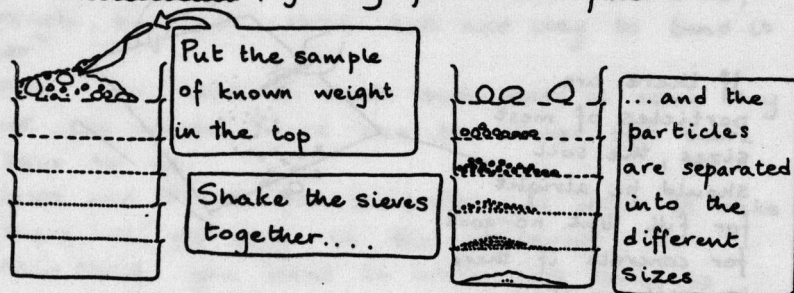 Put the sample
of known weight
in the top
Shake the sieves
together....
...and the
particles
are separated
into the
different
sizes